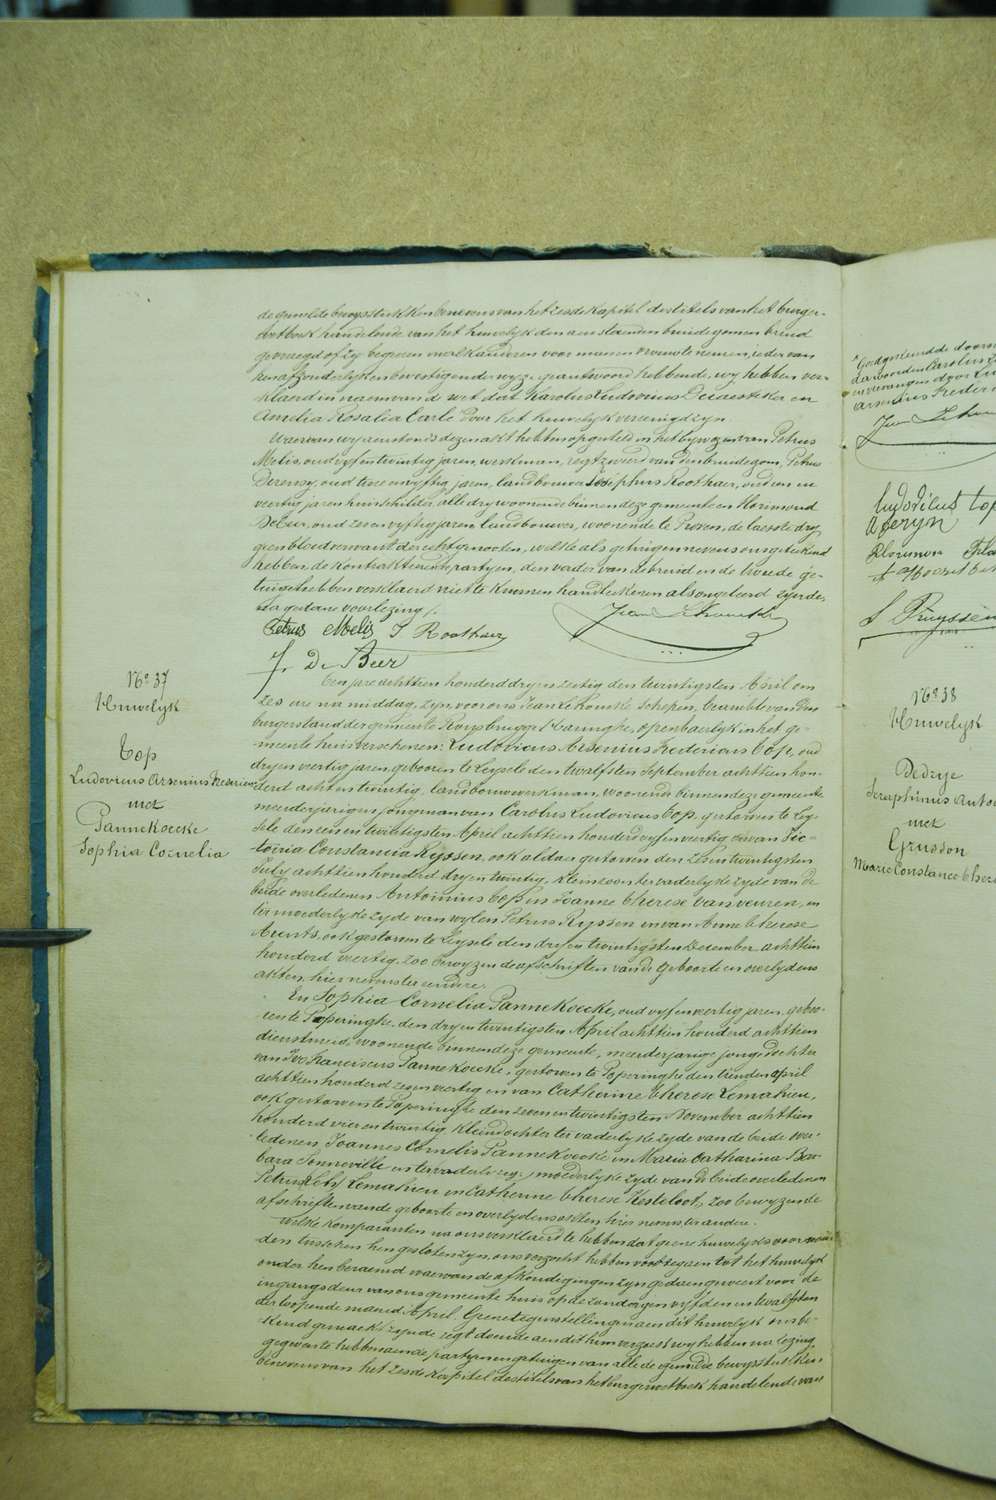 de gemelde bewysstukken benevens van het zesde kapitel des titels van het burger-
wetboek handelende van het huwelyk den aenstaenden bruidegom en bruid
gevraegd of zy begeeren malkanderen voor man en vrouw te nemen, ieder van
hen afzonderlyk en bevestigender wyze geantwoord hebbende, wy hebben ver-
klaerd in naem van de wet dat Karolus Ludovicus Deraedt en
Amelia Rosalia Carle door het huwelyk vereenigd zyn.
Waervan wy aenstonds dezen akt hebben opgesteld in het bywezen van Petrus
Melis, oud vyf en twintig jaren, werkman, regtzweer van den bruidegom, Petrus
oud twee en vyftig jaren, landbouwer Josephus Roothaer, oud een en
veertig jaren huisschilder, alle dry woonende binnen deze gemeente en
De Beer, oud zes en vyftig jaren landbouwer, woonende te de laeste dry
geen bloedverwant der echtgenooten, welke als getuigen nevens ons geteekend
hebben de kontrakteerende partyen, den vader van de bruid en de tweede ge-
tuige hebben verklaerd niet te kunnen handteekenen als ongeleerd zynde,
na gedane voorlezing.
Petrus Melis J Roothaer
J. De Beer
N° 37
Huwelyk
Top
Ludovicus Arsenius Frederic
met
Pannekoecke
Sophia Cornelia
Ten jare achttien honderd dry en zestig den twintigsten April om
zes ure na middag, zyn voor ons Jean Schepen, Ambte van den
burgerstand der gemeente Rousbrugge Haringhe, openbaerlyk in het ge-
meente huis verschenen: Ludovicus Arsenius Fredericus Top, oud
dry en veertig jaren, geboren te Leysele den twalfsten September achttien hon-
derd achttien twintig, landbouwwerkman, woonende binnen deze gemeente
meerderjarigen jongman van Carolus Ludovicus Top, gestorven te Ley-
sele den een en twintigsten April achttien honderd vyf en veertig en van Vic-
toria Constancia Ryssen, ook aldaer gestorven den zes en twintigsten
July achttien honderd dry en twintig, kleinzoon ter vaderlyke zyde van de
beide overledenen Antonius Top en Joanne Therese Van veuren, en
ter moederlyke zyde van wylen Petrus Ryssen en van Anne Therese
Arents, ook gestorven te Leysele den dry en twintigsten December achttien
honderd veertig, zoo bewyzen de afschriften van de geboorte en overlydens
akten, hier nevens ter andere.
En Sophia Cornelia Pannekoecke, oud vyf en veertig jaren, gebo-
ren te Poperinghe, den dry en twintigsten April achttien honderd achttien
dienstmeid, woonende binnen deze gemeente, meerderjarige jonge dochter
van Ivo Franciscus Pannekoecke, gestorven te Poperinghe den tienden April
achttien honderd zeven veertig en van Catharine Therese Lemahieu,
ook gestorven te Poperinghe den zeven en twintigsten November achttien
honderd vier en twintig, kleindochter ter vaderlyke zyde van de beide over-
ledenen Joannes Cornelis Pannekoecke en Maria Catharina Bar-
bara Sonneville en ter moederlyke zyde van de beide overledenen
Petrus Lemahieu en Catherine Therese Kesteloot, zoo bewyzen de
afschriften van de geboorte en overlydens akten hier nevens ter andere.
Welke komparanten na ons verklaerd te hebben dat geene huwelyksvoorwaer-
den tusschen hen gesloten zyn, ons verzocht hebben voortegaen tot het huwelyk
onder hen beraemd waervan de afkondigingen zyn gedaen geweest voor de
ingangs deur van ons gemeente huis op de zondagen vyfden en twalfsten
der loopende maend April. Geene tegenstelling aen dit huwelyk ons be-
kend gemaekt zynde, regt doende aen dit hun verzoek wy hebben na lezing
gegeven te hebben aen de partyen en getuigen van alle de gemelde bewysstukken
benevens van het zesde kapitel des titels van het burgerwetboek handelende van
Goedgekeurd de doorse
de woorden Carolus
en vervangen door Lu
Arsenius Frederic
Ludovicus Top
A feryn
Florimon
S Pruyssen
N° 38
Huwelyk
Dedrye
Seraphinus Anto
met
Grusson
Marie Constance There